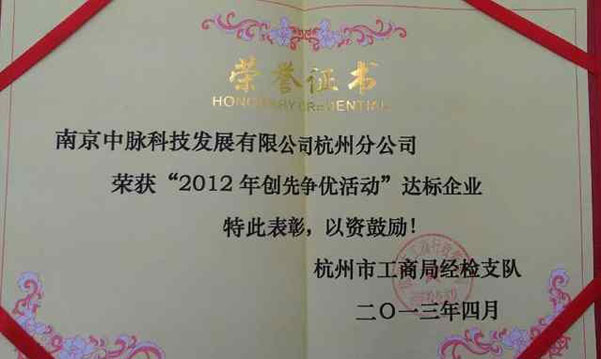 荣誉证书
HONORARY CREDENTIAL
南京中脉科技发展有限公司杭州分公司
荣获“2012年创先争优活动”达标企业
特此表彰，以资鼓励！
杭州市工商局经检支队
二〇一三年四月